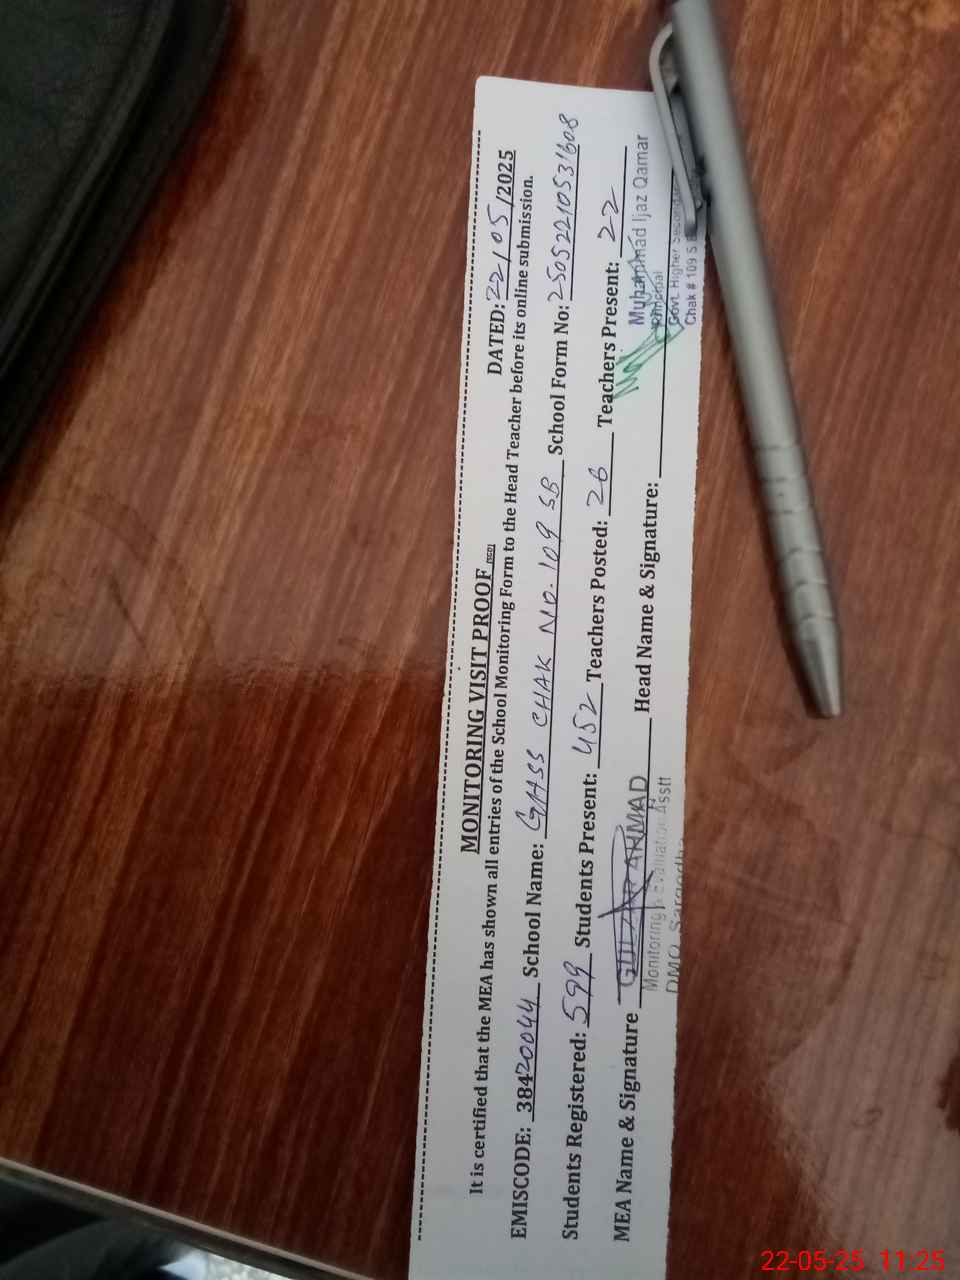 MONITORING VISIT PROOF
DATED: 22/05/2025
It is certified that the MEA has shown all entries of the School Monitoring Form to the Head Teacher before its online submission.
EMISCODE: 38420044 School Name: GHSS CHAK NO. 109 SB School Form No: 25052210531608
Students Registered: 599 Students Present: 452 Teachers Posted: 26 Teachers Present: 22
MEA Name & Signature GULZAR AHMAD Head Name & Signature:
Monitoring & Evaluation Asstt
DMO Sargodha
Muhammad Ijaz Qamar
Principal
Govt. Higher
Chak # 109 S
22-05-25 11:25